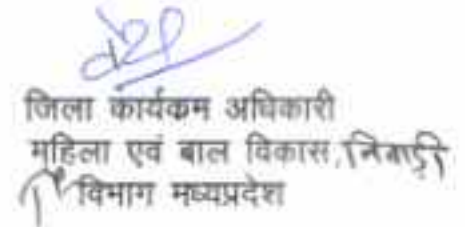 जिला कार्यकम अधिकारी
महिला एवं बाल विकास, निवाड़ी
विभाग मध्यप्रदेश